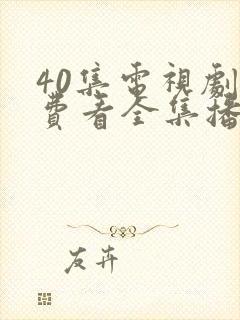 40集電視劇
費看全集播
友卉